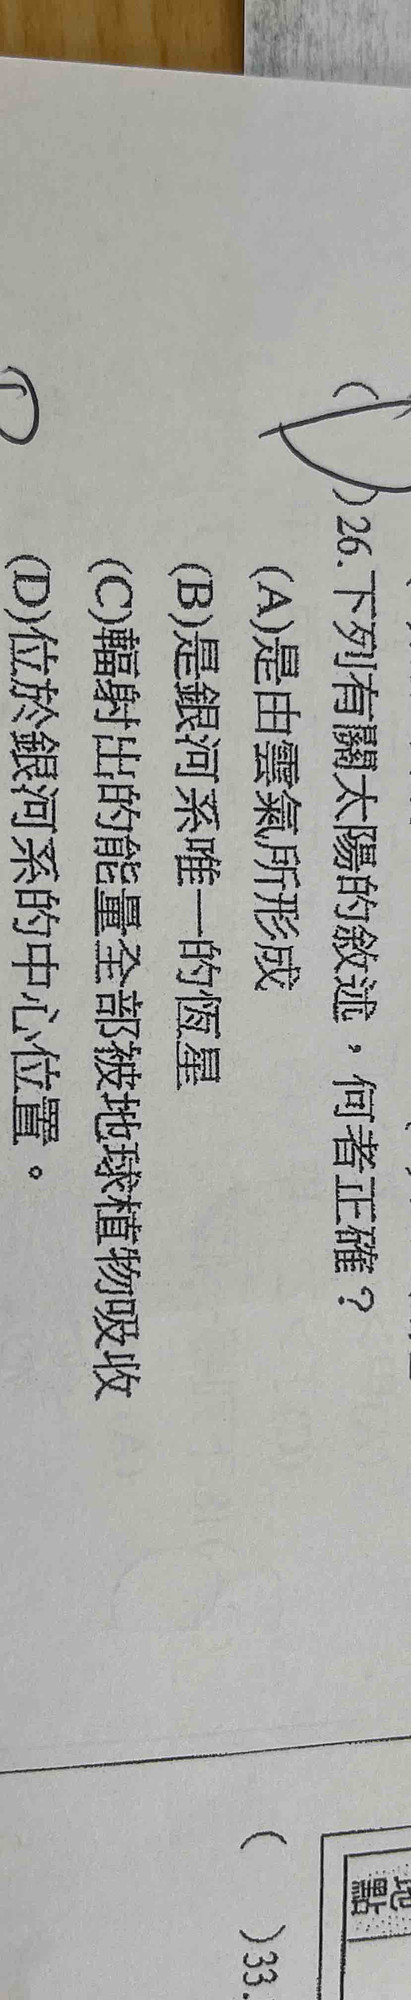 ( )26.下列有關太陽的敘述，何者正確？
(A)是由雲氣所形成
(B)是銀河系唯一的恆星
(C)輻射出的能量全部被地球植物吸收
(D)位於銀河系的中心位置。
地點
( )33.